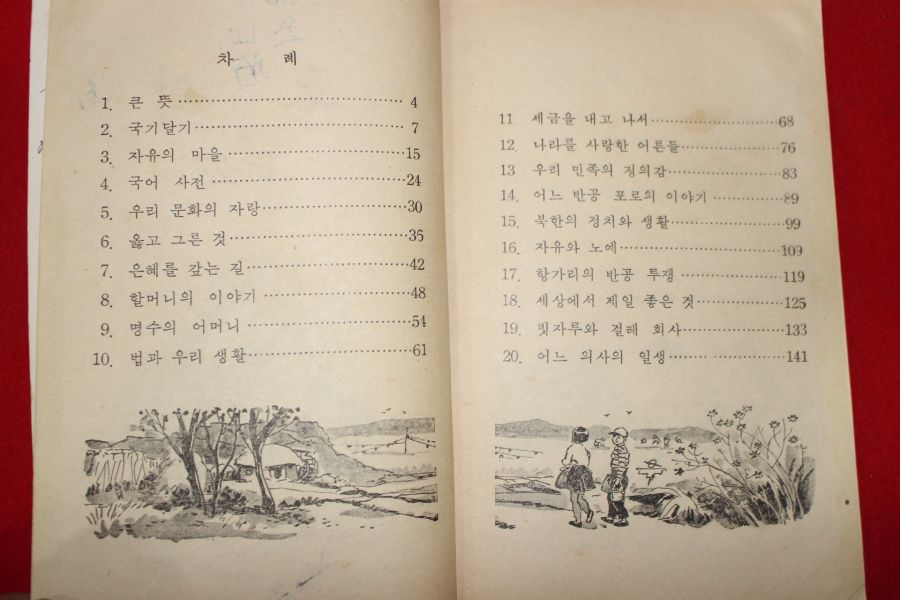 차 례
1. 큰 뜻 4
2. 국기달기 7
3. 자유의 마을 15
4. 국어 사전 24
5. 우리 문화의 자랑 30
6. 옳고 그른 것 36
7. 은혜를 갚는 길 42
8. 할머니의 이야기 48
9. 명수의 어머니 54
10. 법과 우리 생활 61
11 세금을 내고 나서 68
12. 나라를 사랑한 어른들 76
13 우리 민족의 정의감 83
14. 어느 반공 포로의 이야기 89
15. 북한의 정치와 생활 99
16. 자유와 노예 109
17. 항가리의 반공 투쟁 119
18. 세상에서 제일 좋은 것 125
19. 빗자루와 걸레 회사 133
20. 어느 의사의 일생 141